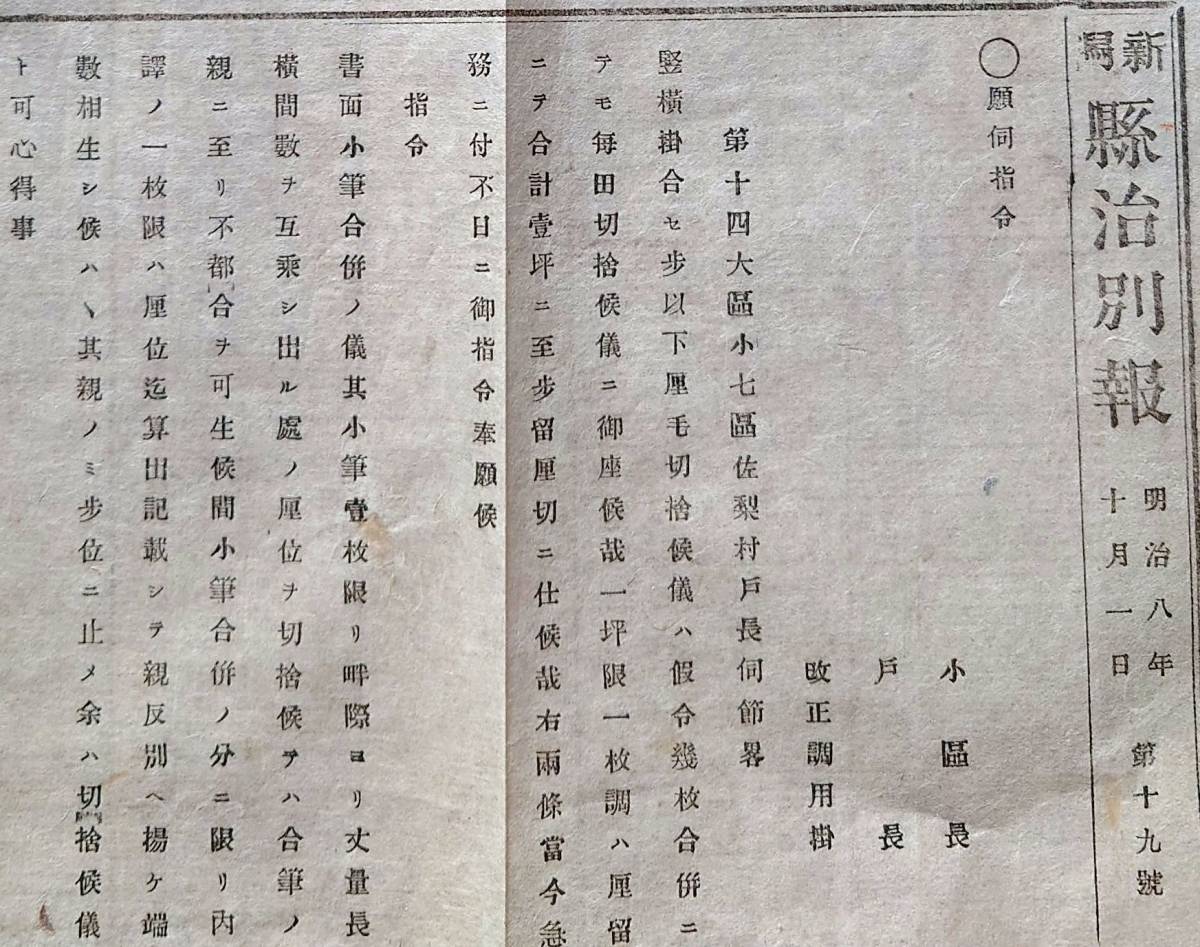 新潟
縣治別報
明治八年
十月一日
第十九號
〇願伺指令
小區長
戸長
改正調用掛
第十四大區小七區佐梨村戸長伺節畧
竪横掛合セ步以下厘毛切捨候儀ハ假令幾枚合併ニ
テモ毎田切捨候儀ニ御座候哉一坪限一枚調ハ厘留
ニテ合計壹坪ニ至步留厘切ニ仕候哉右兩條當今急
務ニ付不日ニ御指令奉願候
指令
書面小筆合併ノ儀其小筆壹枚限リ畔際ヨリ丈量長
横間數ヲ互乘シ出ル處ノ厘位ヲ切捨候テハ合筆ノ
親ニ至リ不都合ヲ可生候間小筆合併ノ分ニ限リ内
譯ノ一枚限ハ厘位迄算出記載シテ親反別ヘ揚ケ端
數相生シ候ハヽ其親ノミ步位ニ止メ余ハ切捨候儀
ト可心得事